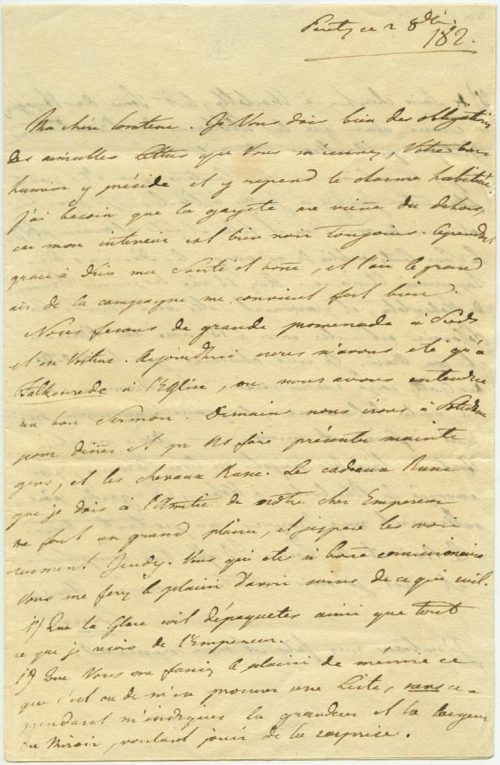 ce 2 8bre
182.
Ma chère Comtesse. Je Vous dois bien des obligations
des aimables lettres que Vous m'écrivez, Votre bonne
humeur y préside et y repend le charme habituel.
J'ai besoin que la gayeté me vienne du dehors,
car mon interieur est bien noir toujours. Cependant
grace à Dieu ma Santé est bonne, et l'air le grand
air de la campagne me convient fort bien.
Nous fesons de grande promenade à Pieds
et en Voiture. Aujourdhui nous n'avons été qu'à
Falkenrede à l'Eglise, ou nous avons entendu
un bon Sermon. Demain nous irons à Potsdam
pour diner et pr
gens, et les chevaux Russe. Les cadeaux Russe
que je dois à l'Amitié de notre cher Empereur
me font un grand plaisir, et j'espère les voir
surement Jeudy. Vous qui etes si bonne commissionaire
Vous me ferez le plaisir d'avoir soins de ce qui suit.
1) Que la Glace soit dépaquetée ainsi que tout
ce que je reçois de l'Empereur.
2) Que Vous me fassiez le plaisir de m'écrire ce
que c'est ou de m'en procurer une Liste, sans ce-
pendant m'indiquer la grandeur et la largeur
du Miroir, voulant jouir de la surprise.